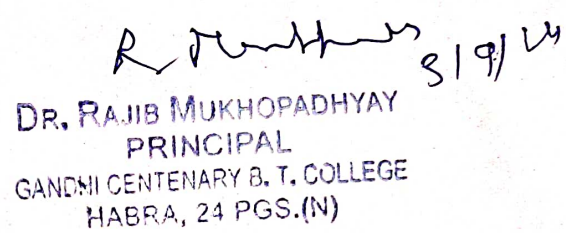 R. Mukhopadhyay 3/9/24
DR. RAJIB MUKHOPADHYAY
PRINCIPAL
GANDHI CENTENARY B. T. COLLEGE
HABRA, 24 PGS.(N)